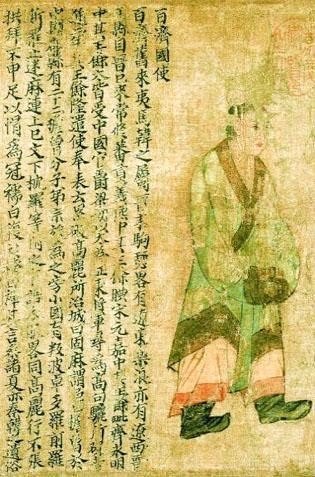 百濟國使
百濟舊來夷馬韓之屬晉末駒驪略有遼東樂浪亦有遼西晉
平縣自晉已來常修蕃貢義熙中其王餘腆宋元嘉中其王餘毗齊永明
中其王餘太皆受中國官爵梁初以太爲征東將軍尋爲高句驪所破
其王餘隆遣使奉表云累破高麗所治城曰固麻謂邑檐魯於
中國郡縣有二十二檐魯分子弟宗族爲之旁小國有叛波卓多羅前羅
斯羅止迷麻連上巳文下枕羅等附之言語衣服略同高麗行不張
拱拜不申足以帽爲冠襦曰複衫袴曰褌其言參諸夏亦秦韓之遺俗